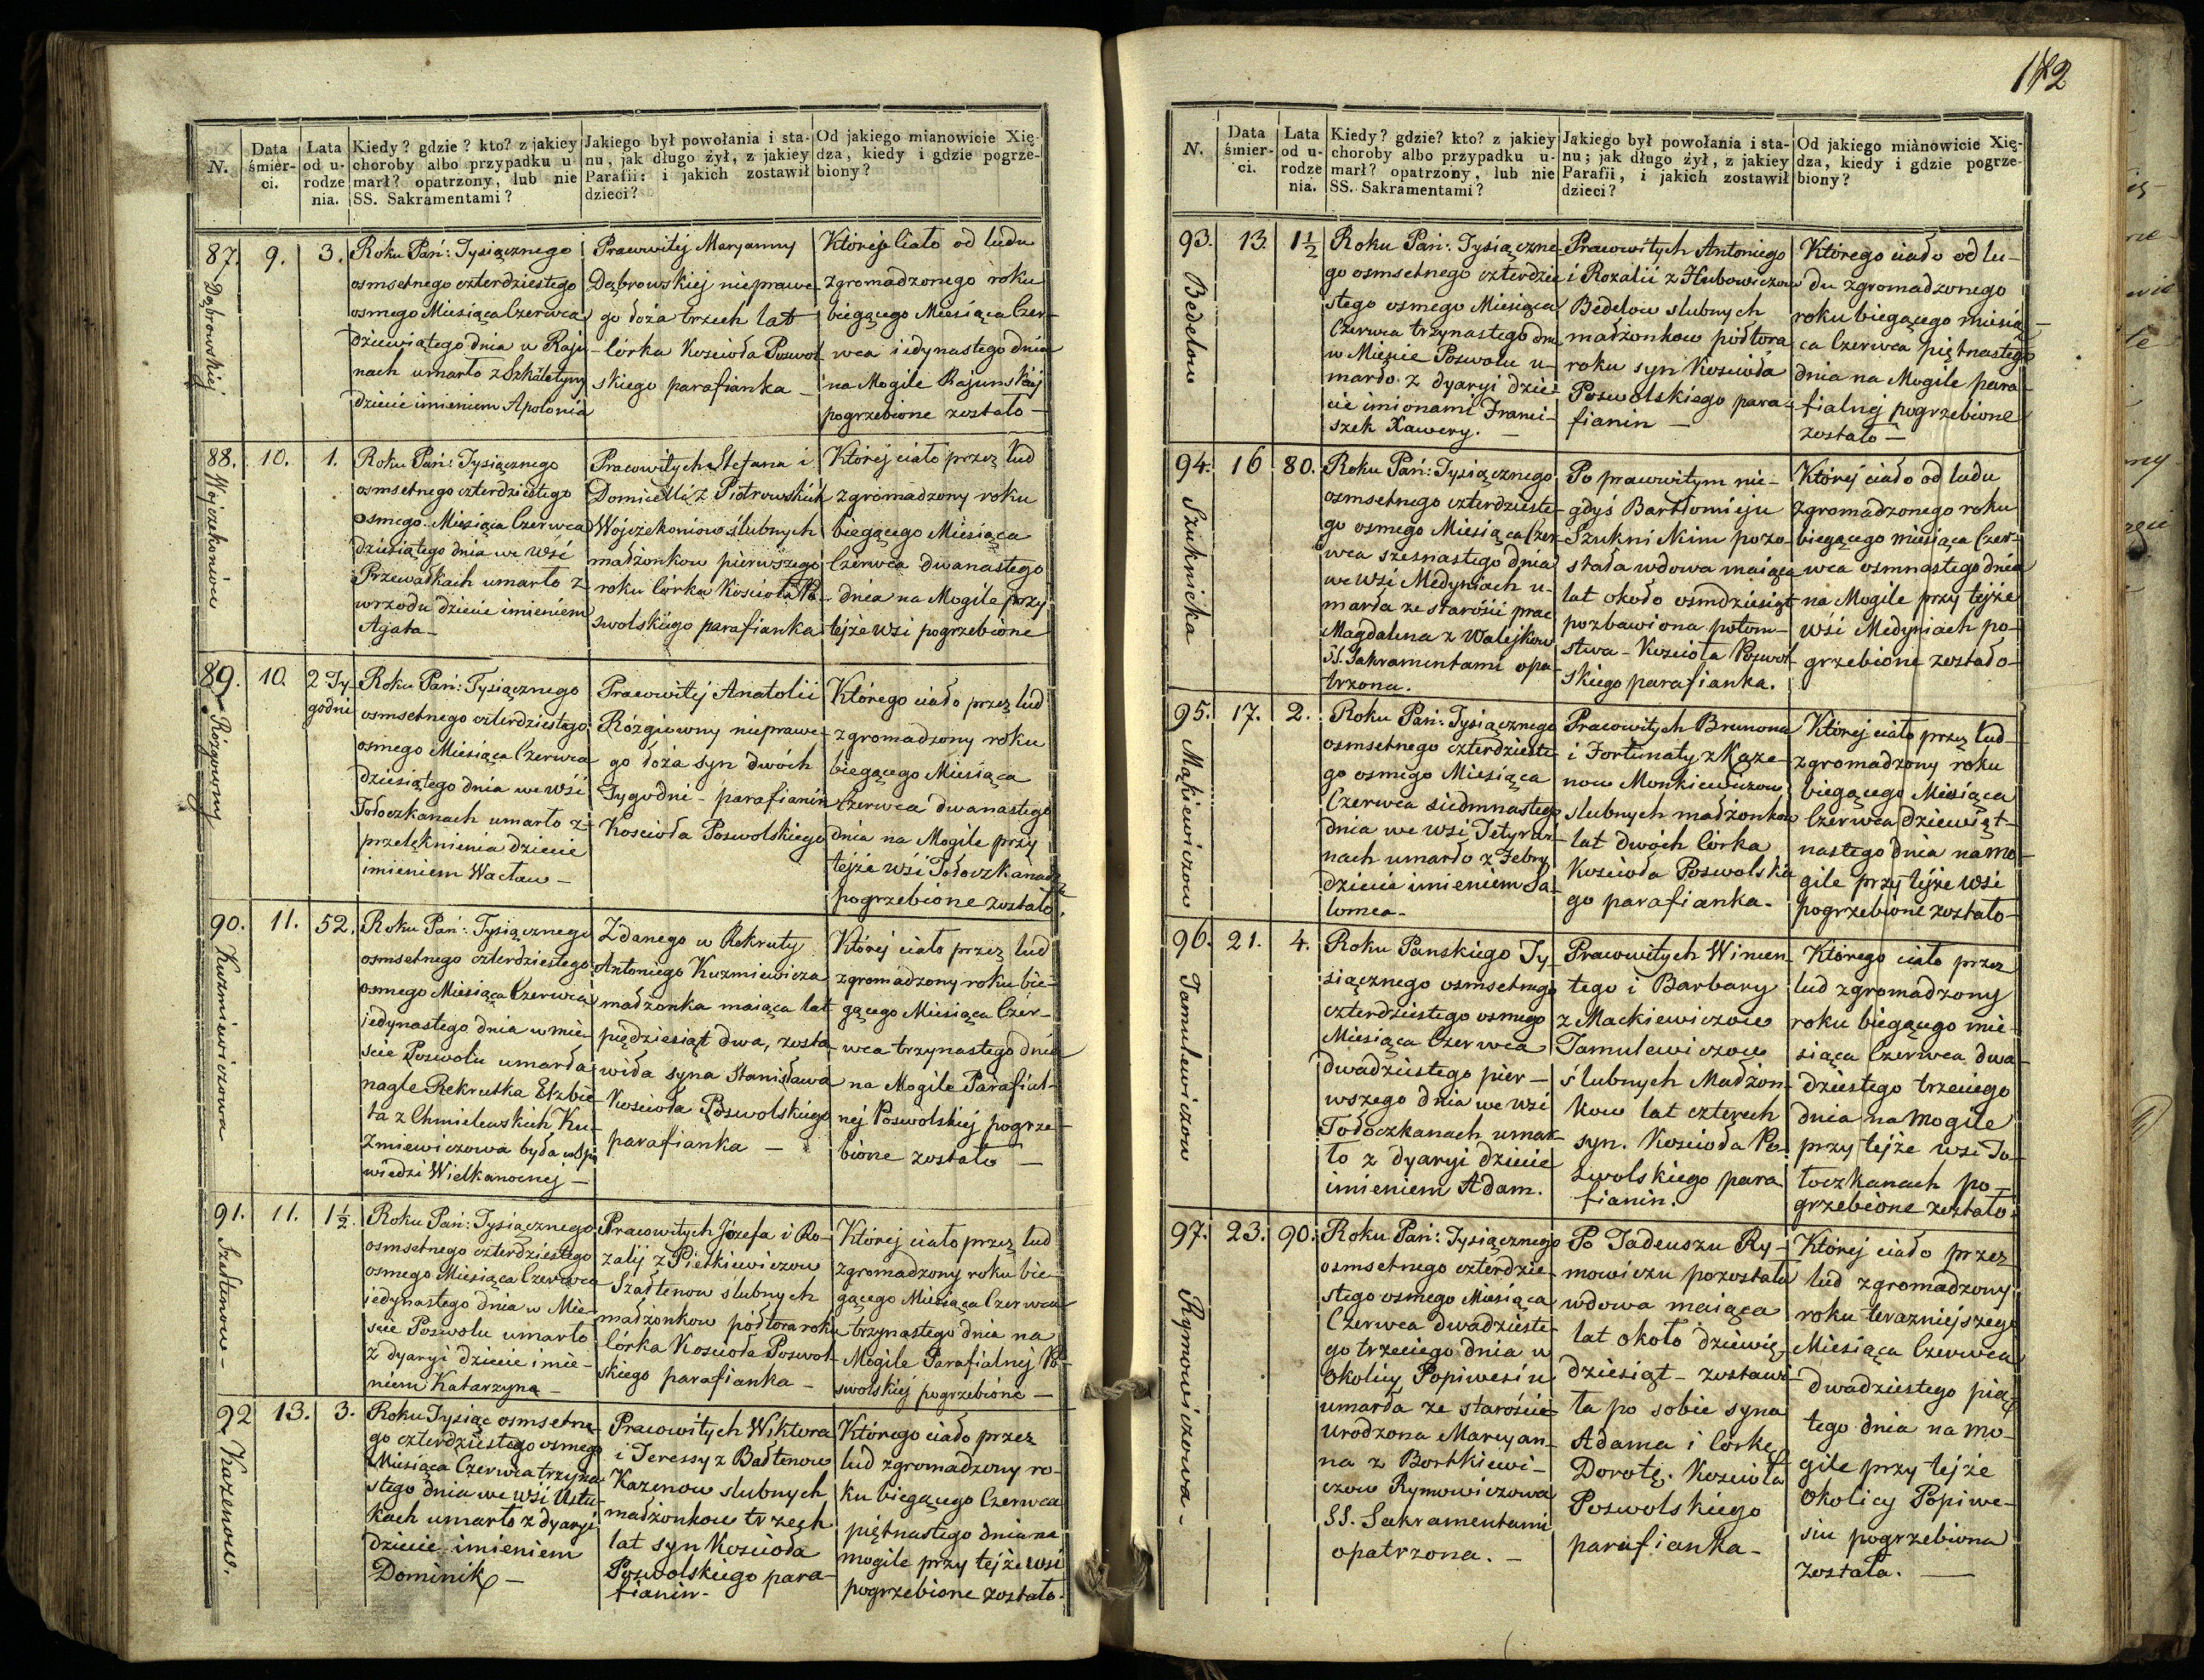 N.
Data
śmier-
ci.
Lata
od u-
rodze
nia.
Kiedy? gdzie? kto? z jakiey
choroby albo przypadku u-
marł? opatrzony, lub nie
SS. Sakramentami?
Jakiego był powołania i sta-
nu, jak długo żył, z jakiey
Parafii: i jakich zostawił
dzieci?
Od jakiego mianowicie Xię-
dza, kiedy i gdzie pogrze-
biony?
87.
Dąbrowskiej
9.
3.
Roku Pań: Tysiącznego
osmsetnego czterdziestego
osmego Miesiąca Czerwca
dziewiątego dnia w Raju-
nach umarło z Szkarletyny
dziecie imieniem Apolonia
Pracowitej Maryanny
Dąbrowskiej nieprawe-
go łoża trzech lat
córka Koscioła Poswol
skiego parafianka –
Której Ciało od ludu
zgromadzonego roku
biegącego Miesiąca Czer-
wca iedynastego dnia
na Mogile Rajunskiej
pogrzebione zostało –
88.
Wojczekoniow
10.
1.
Roku Pań: Tysiącznego
osmsetnego czterdziestego
osmego Miesiąca Czerwca
dziesiątego dnia we Wsi
Przewałkach umarło z
wrzodu dziecie imieniem
Agata –
Pracowitych Stefana i
Domicelli z Piotrowskich
Wojczekoniow ślubnych
małżonkow pierwszego
roku Córka Kościoła Po-
swolskiego parafianka
Której ciało przez lud
zgromadzony roku
biegącego Miesiąca
Czerwca dwanastego
dnia na Mogile przy
tejże wsi pogrzebione
89.
Rózgiowny
10.
2 Ty-
godni
Roku Pań: Tysiącznego
osmsetnego czterdziestego
osmego Miesiąca Czerwca
dziesiątego dnia we Wsi
Tołoczkanach umarło z
przelęknienia dziecie
imieniem Wacław –
Pracowitej Anatolii
Rózgiowny nieprawe-
go łoża syn dwóch
Tygodni – parafianin
Kosciola Poswolskiego
Którego ciało przez lud
zgromadzony roku
biegącego Miesiąca
Czerwca dwanastego
dnia na Mogile przy
tejże wsi Tołoczkanach
pogrzebione zostało.
90.
Kuzmiewiczowa
11.
52.
Roku Pań: Tysiącznego
osmsetnego czterdziestego
osmego Miesiąca Czerwca
jedynastego dnia w mie-
scie Poswolu umarła
nagle Rekrutka Elzbie
ta z Chmielewskich Ku-
zmiewiczowa była u Spo
wiedzi Wielkanocnej –
Zdanego w Rekruty
Antoniego Kuzmiewicza
małżonka maiąca lat
pięćdziesiąt dwa, zosta-
wiła syna Stanisława
Kosciola Poswolskiego
parafianka –
Której ciało przez lud
zgromadzony roku bie-
gącego Miesiąca Czer-
wca trzynastego dnia
na Mogile Parafial-
nej Poswolskiej pogrze-
bione zostało –
91.
Szaltenow –
11.
1½.
Roku Pań: Tysiącznego
osmsetnego czterdziestego
osmego Miesiąca Czerwca
iedynastego dnia w Mie-
scie Poswolu umarło
z dyaryi dziecie imie-
niem Katarzyna –
Pracowitych Józefa i Ro-
zalij z Pietkiewiczow
Szałtenow slubnych
małżonkow półtora roku
Córka Kosciola Poswol-
skiego parafianka –
Której ciało przez lud
zgromadzony roku bie-
gącego Miesiąca Czerwca
trzynastego dnia na
Mogile Parafialnej Po-
swolskiej pogrzebione –
92
Kazenow.
13.
3.
Roku Tysiąc osmsetne-
go czterdziestego osmego
Miesiąca Czerwca trzyna
stego dnia we wsi Ustu-
kach umarło z dyaryi
dziecie imieniem
Dominik –
Pracowitych Wiktora
i Teressy z Bałtenow
Kazenow slubnych
małżonkow trzech
lat syn Kosciola
Poswolskiego para-
fianin –
Którego ciało przez
lud zgromadzony ro-
ku biegącego Czerwca
piętnastego dnia na
mogile przy tejże wsi
pogrzebione zostało.
N.
Data
śmier-
ci.
Lata
od u-
rodze
nia.
Kiedy? gdzie? kto? z jakiey
choroby albo przypadku u-
marł? opatrzony, lub nie
SS. Sakramentami?
Jakiego był powołania i sta-
nu; jak długo żył, z jakiey
Parafii, i jakich zostawił
dzieci?
Od jakiego mianowicie Xię-
dza, kiedy i gdzie pogrze-
biony?
93.
Bedelow
13
1½
Roku Pań: Tysiączne-
go osmsetnego czterdzie
stego osmego Miesiąca
Czerwca trzynastego dnia
w Mieście Poswolu u-
marło z dyaryi dzie-
cie imionami Franci-
szek Xawery. –
Pracowitych Antoniego
i Rozalii z Hubowiczow
Bedelow slubnych
małżonkow półtora
roku syn Kosciola
Poswolskiego para-
fianin –
Którego ciało od lu-
du zgromadzonego
roku biegącego miesią-
ca Czerwca piętnastego
dnia na Mogile para
fialnej pogrzebione
zostało –
94.
Szuknicka
16
80.
Roku Pań: Tysiącznego
osmsetnego czterdzieste
go osmego Miesiąca Czer-
wca szesnastego dnia
we Wsi Medyniach u-
marła ze starości prac
Magdalena z Walejkow
SS. Sakramentami opa-
trzona.
Po pracowitym nie-
gdyś Bartłomieju
Szuknickim pozo-
stała wdowa maiąca
lat około osmdziesiąt
pozbawiona potom-
stwa – Kosciola Poswol-
skiego parafianka.
Której ciało od ludu
zgromadzonego roku
biegącego miesiąca Czer-
wca osmnastego dnia
na Mogile przy tejże
wsi Medyniach po-
grzebione zostało –
95.
Mąkiewiczow
17.
2.
Roku Pań: Tysiącznego
osmsetnego czterdzieste-
go osmego Miesiąca
Czerwca siedmnastego
dnia we wsi Tetyrwi-
nach umarło z Febry
dziecie imieniem Sa-
lomea –
Pracowitych Brunona
i Fortunaty z Kaze-
now Monkiewiczow
slubnych małżonkow
lat dwóch Córka
Kosciola Poswolskie
go parafianka –
Której ciało przez lud
zgromadzony roku
biegącego Miesiąca
Czerwca dziewięt-
nastego dnia na Mo-
gile przy tejże wsi
pogrzebione zostało –
96.
Tamulewiczow
21.
4.
Roku Panskiego Ty-
siącznego osmsetnego
czterdziestego osmego
Miesiąca Czerwca
dwadziestego pier-
wszego dnia we wsi
Tołoczkanach umar-
ło z dyaryi dziecie
imieniem Adam.
Pracowitych Wincen-
tego i Barbary
z Mackiewiczow
Tamulewiczow
ślubnych Małżon-
kow lat czterech
syn. Kosciola Po-
swolskiego para
fianin.
Którego ciało przez
lud zgromadzony
roku biegącego mie-
siąca Czerwca dwa-
dziestego trzeciego
dnia na Mogile
przy tejże wsi To-
łoczkanach po-
grzebione zostało.
97.
Rymowiczowa –
23.
90.
Roku Pań: Tysiącznego
osmsetnego czterdzie-
stego osmego Miesiąca
Czerwca dwadzieste-
go trzeciego dnia w
Okolicy Popiwesiu
umarła ze starości
urodzona Maryan-
na z Bortkiewi-
czow Rymowiczowa
SS. Sakramentami
opatrzona. –
Po Tadeuszu Ry-
mowiczu pozostała
wdowa maiąca
lat około dziewię-
dziesiąt – zostawi-
ła po sobie syna
Adama i Córkę
Dorotę. Kosciola
Poswolskiego
parafianka –
Której ciało przez
lud zgromadzony
roku terazniejszego
Miesiąca Czerwca
dwadziestego pią-
tego dnia na mo-
gile przy tejże
Okolicy Popiwe-
siu pogrzebiona
została. –